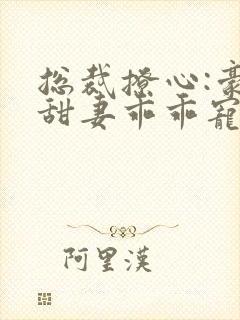 总裁撩心:豪
甜妻乖乖宠
阿里漠